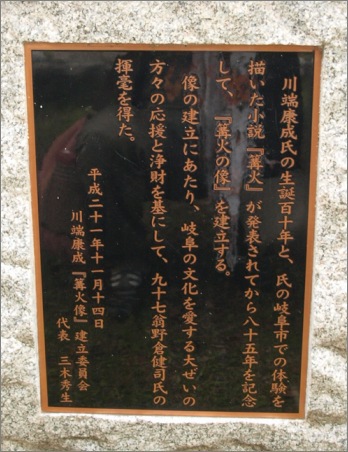 川端康成氏の生誕百十年と、氏の岐阜市での体験を
描いた小説『篝火』が発表されてから八十五年を記念
して、『篝火の像』を建立する。
像の建立にあたり、岐阜の文化を愛する大ぜいの
方々の応援と浄財を基にして、九十七翁野倉健司氏の
揮毫を得た。
平成二十一年十一月十四日
川端康成『篝火像』建立委員会
代表 三木秀生